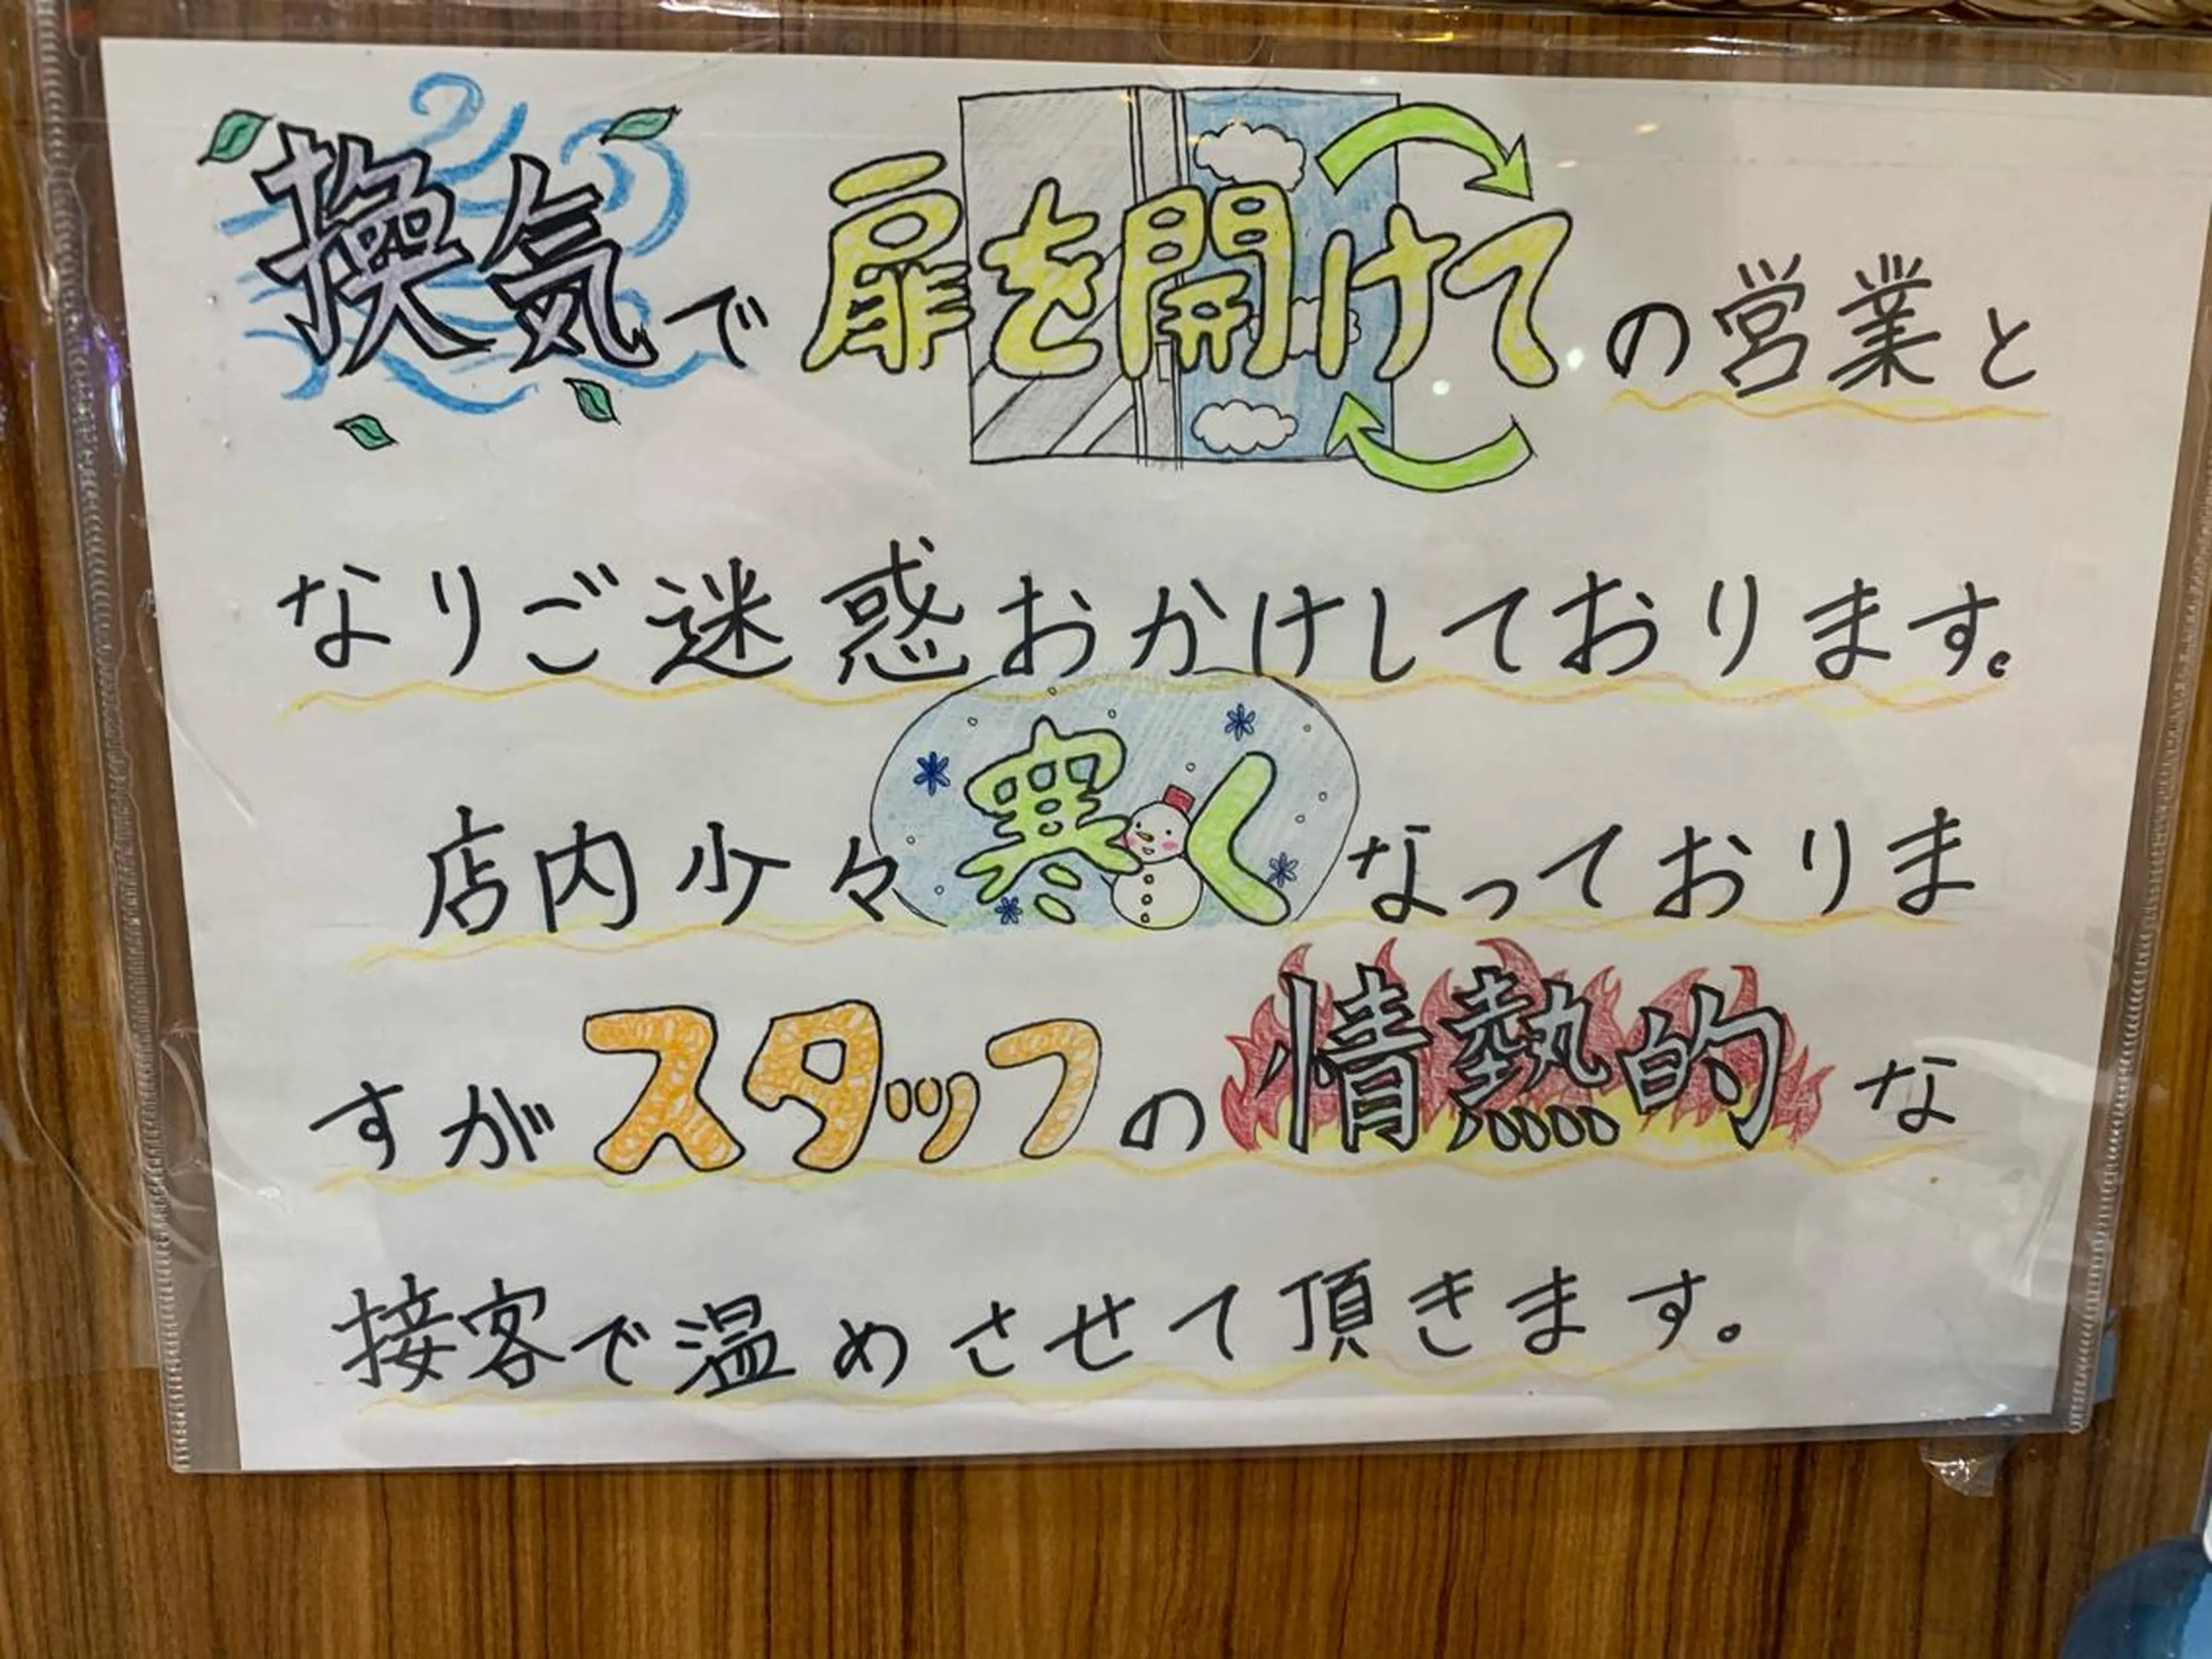 換気で扉を開けての営業と
なりご迷惑おかけしております。
店内少々寒くなっておりま
すがスタッフの情熱的な
接客で温めさせて頂きます。